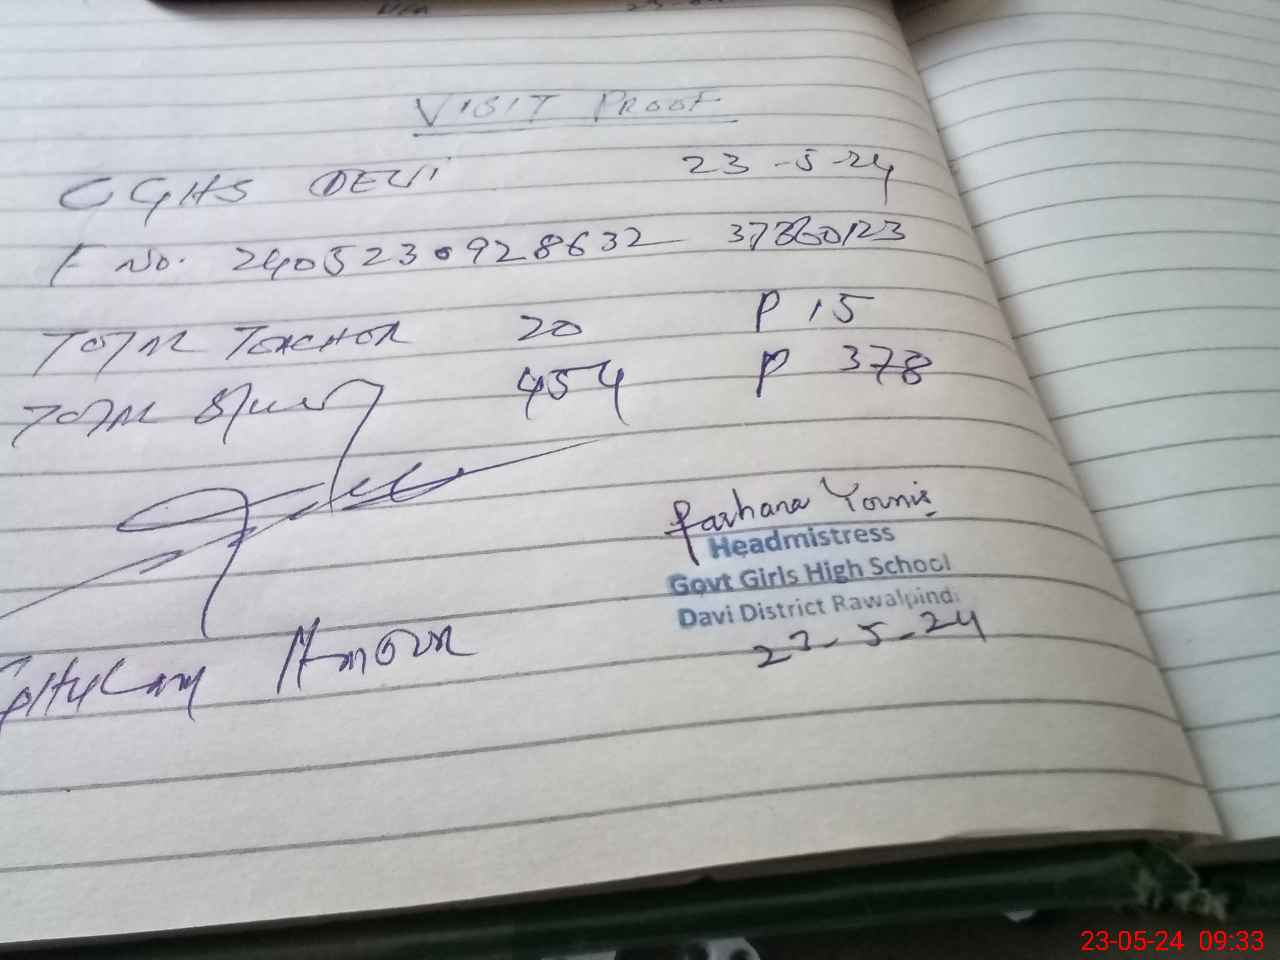 VISIT PROOF
GGHS DEVI 23-5-24
F No. 2405230928632 37360123
TOTAL TEACHER 20 P 15
TOTAL 454 P 378
Farhana Younis
Headmistress
Govt Girls High School
Davi District Rawalpindi
23-5-24
23-05-24 09:33